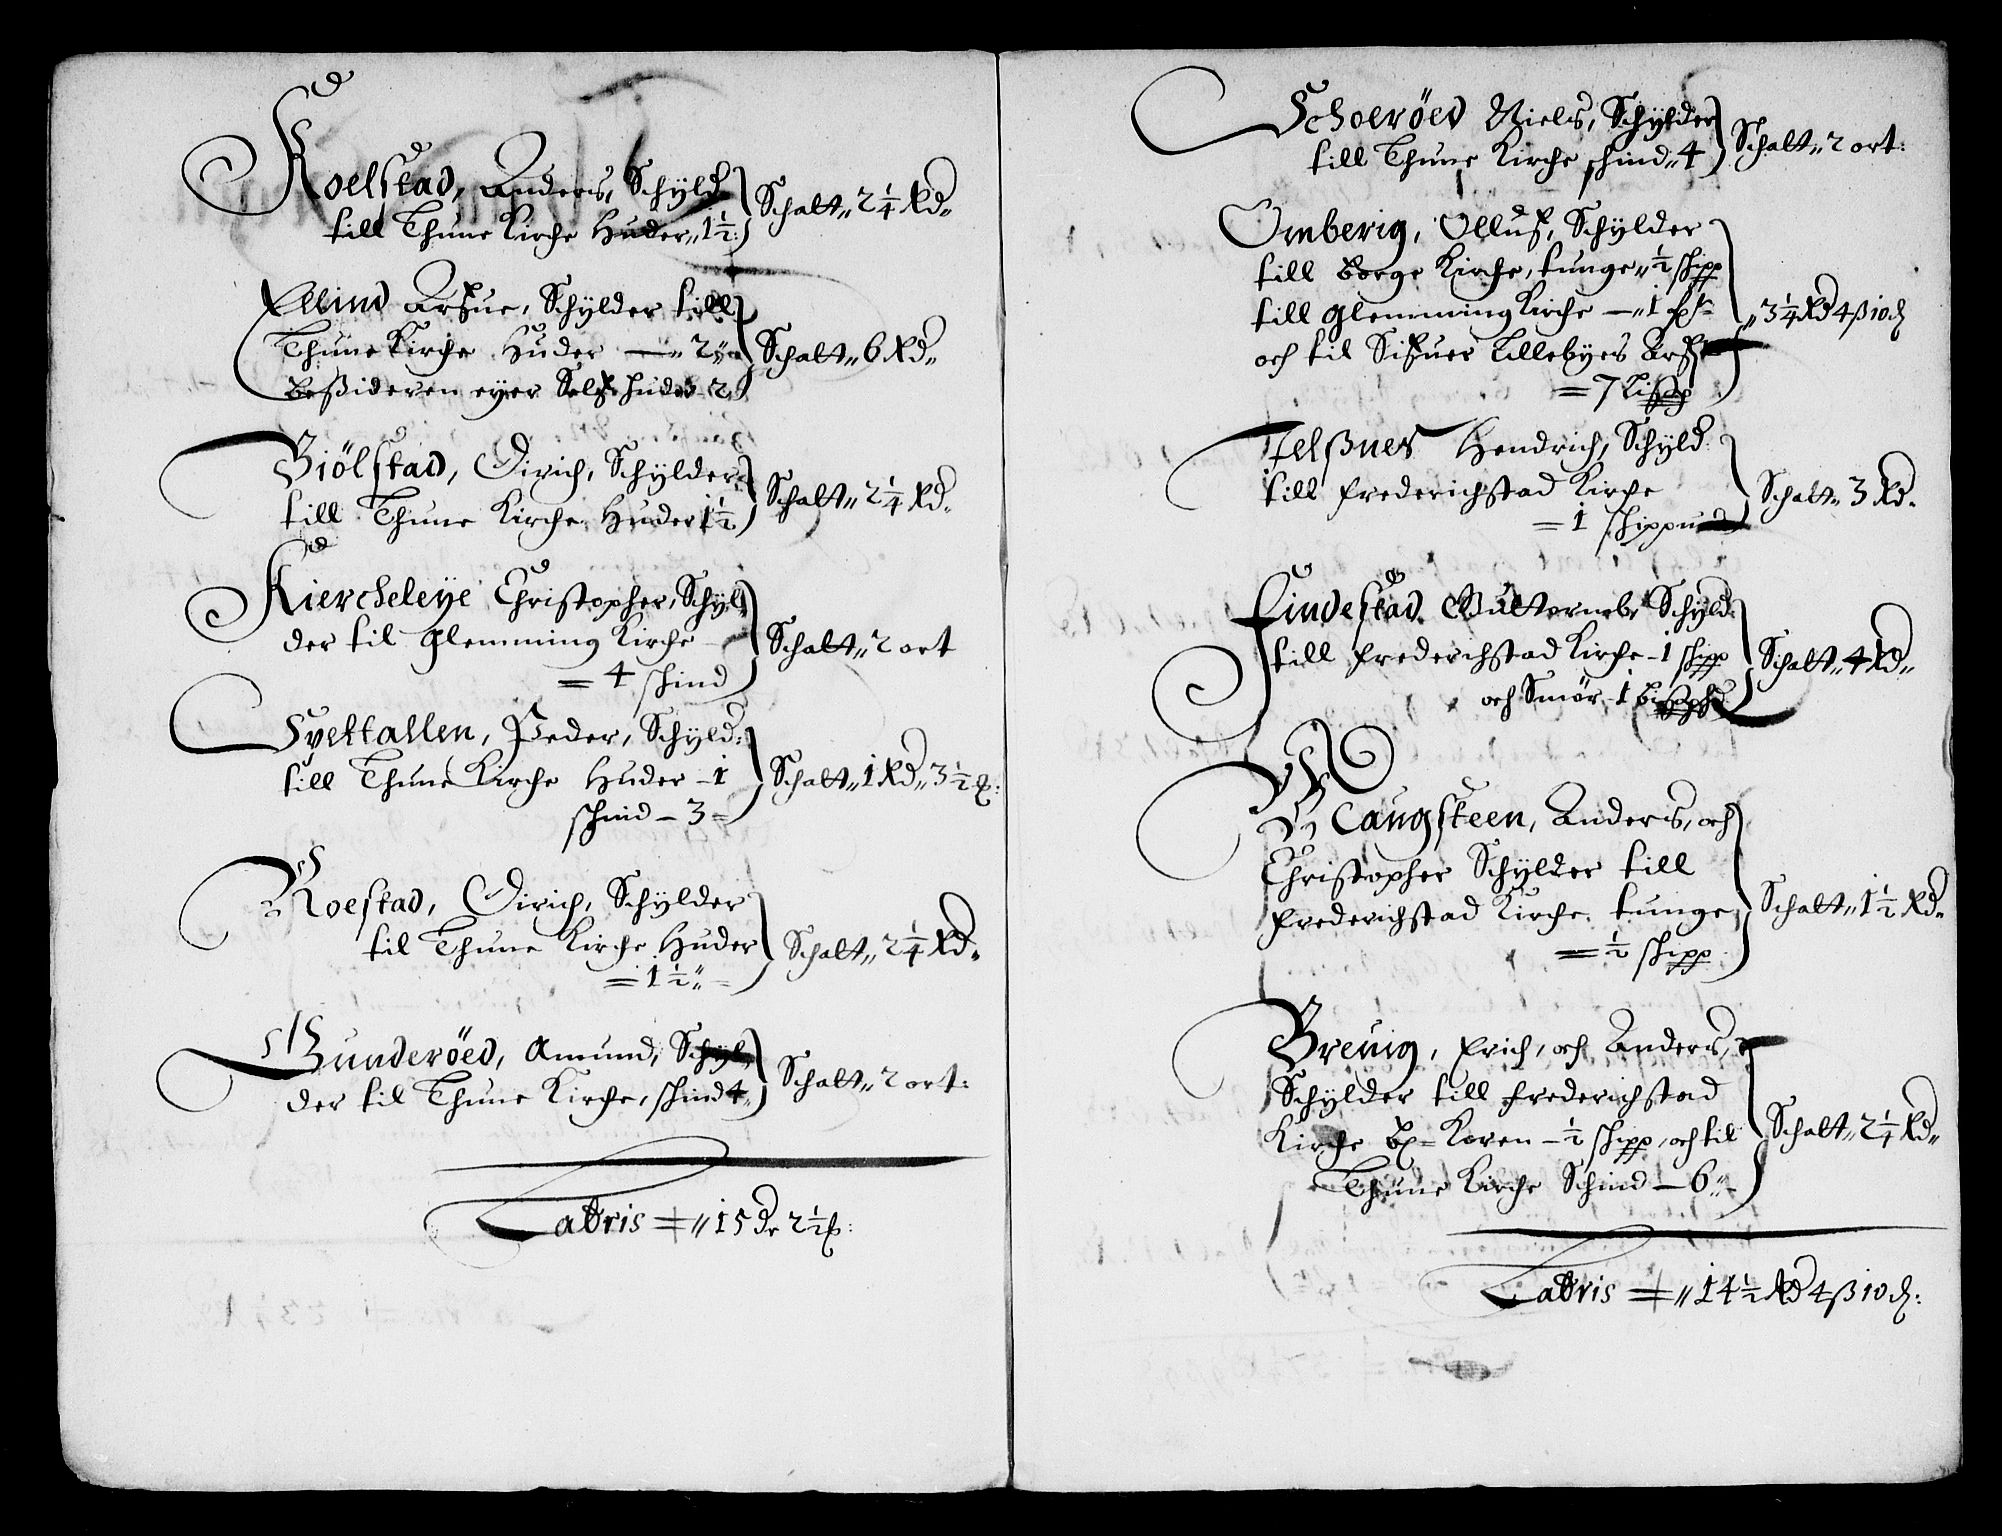 Roelstad, Anders, Schyld
till Thune Kirche Huder„ 1½:
Schatt„ 2¼ Rd„
Ellind Arffue, Schylder till
Thune Kirche Huder — „ 2„
beßideren eyer Selff huder 2
Schatt„ 6 Rd„
Biölstad, Dirich, Schylder
till Thune Kirche Huder 1½
Schatt„ 2¼ Rd„
Kiercheleye Christopher, Schyl
der til Glemming Kirche
= 4 schind
Schatt„ 2 ort
Tvettallen, Peder, Schyld:
till Thune Kirche Huder – 1
schind – 3 =
Schatt„ 1 Rd„ 3½ ß:
Roestad, Dirich, Schylder
til Thune Kirche Huder
= 1½„
Schatt„ 2¼ Rd„
Gunderöed, Amund, Schyl
der til Thune Kirche, schind 4„
Schatt„ 2 ort:
Latris = „ 15 dr 2½ ß:
Schoeröed Niels, Schylder
till Thune Kirche schind„ 4
Schatt„ 2 ort:
Omberig, Olluff, Schylder
till Borge Kirche, tunge„ ½ schpp
till Glemming Kirche — „ 1 fr=
och til Siffuer Lillebyes Arff
= 7 Lispp
„ 3¼ Rd 4 ß 10 ₰
Felßner Hendrich, Schyld:
till Frederichstad Kirche
= 1 schippund
Schatt„ 3 Rd„
Findestad. Gulltorneb: Schyld:
till Frederichstad Kirche – 1 schpp
och Smör 1 bispphd
Schatt„ 4 Rd„
Haugsteen, Anders, och
Christopher Schylder till
Frederichstad Kirche. tunge
= ½ schpp
Schatt„ 1½ Rd„
Breuig, Erich, och Anders,
Schylder till Frederichstad
Kirche Bg= Koren – ½ schpp, och til
Thune Kirche Schind — 6„
Schatt„ 2¼ Rd„
Latris = „ 14½ Rd 4 ß 10 ₰: